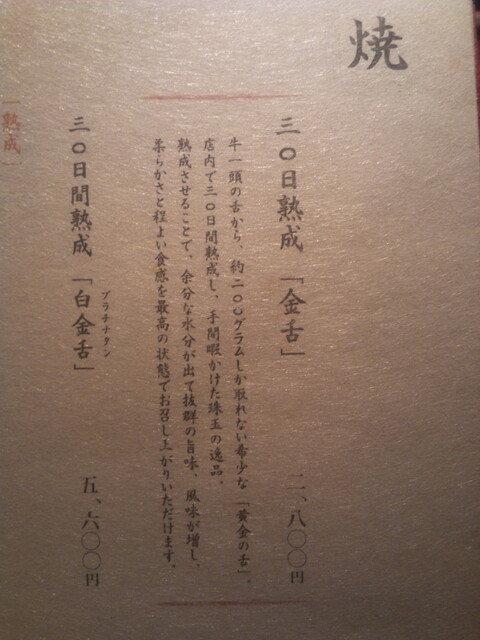 焼
三〇日熟成「金舌」 二、八〇〇円
牛一頭の舌から、約二〇〇グラムしか取れない希少な「黄金の舌」、
店内で三〇日間熟成し、手間暇かけた珠玉の逸品。
熟成させることで、余分な水分が出て抜群の旨味、風味が増し、
柔らかさと程よい食感を最高の状態でお召し上がりいただけます。
プラチナタン
三〇日間熟成「白金舌」 五、六〇〇円
熟成